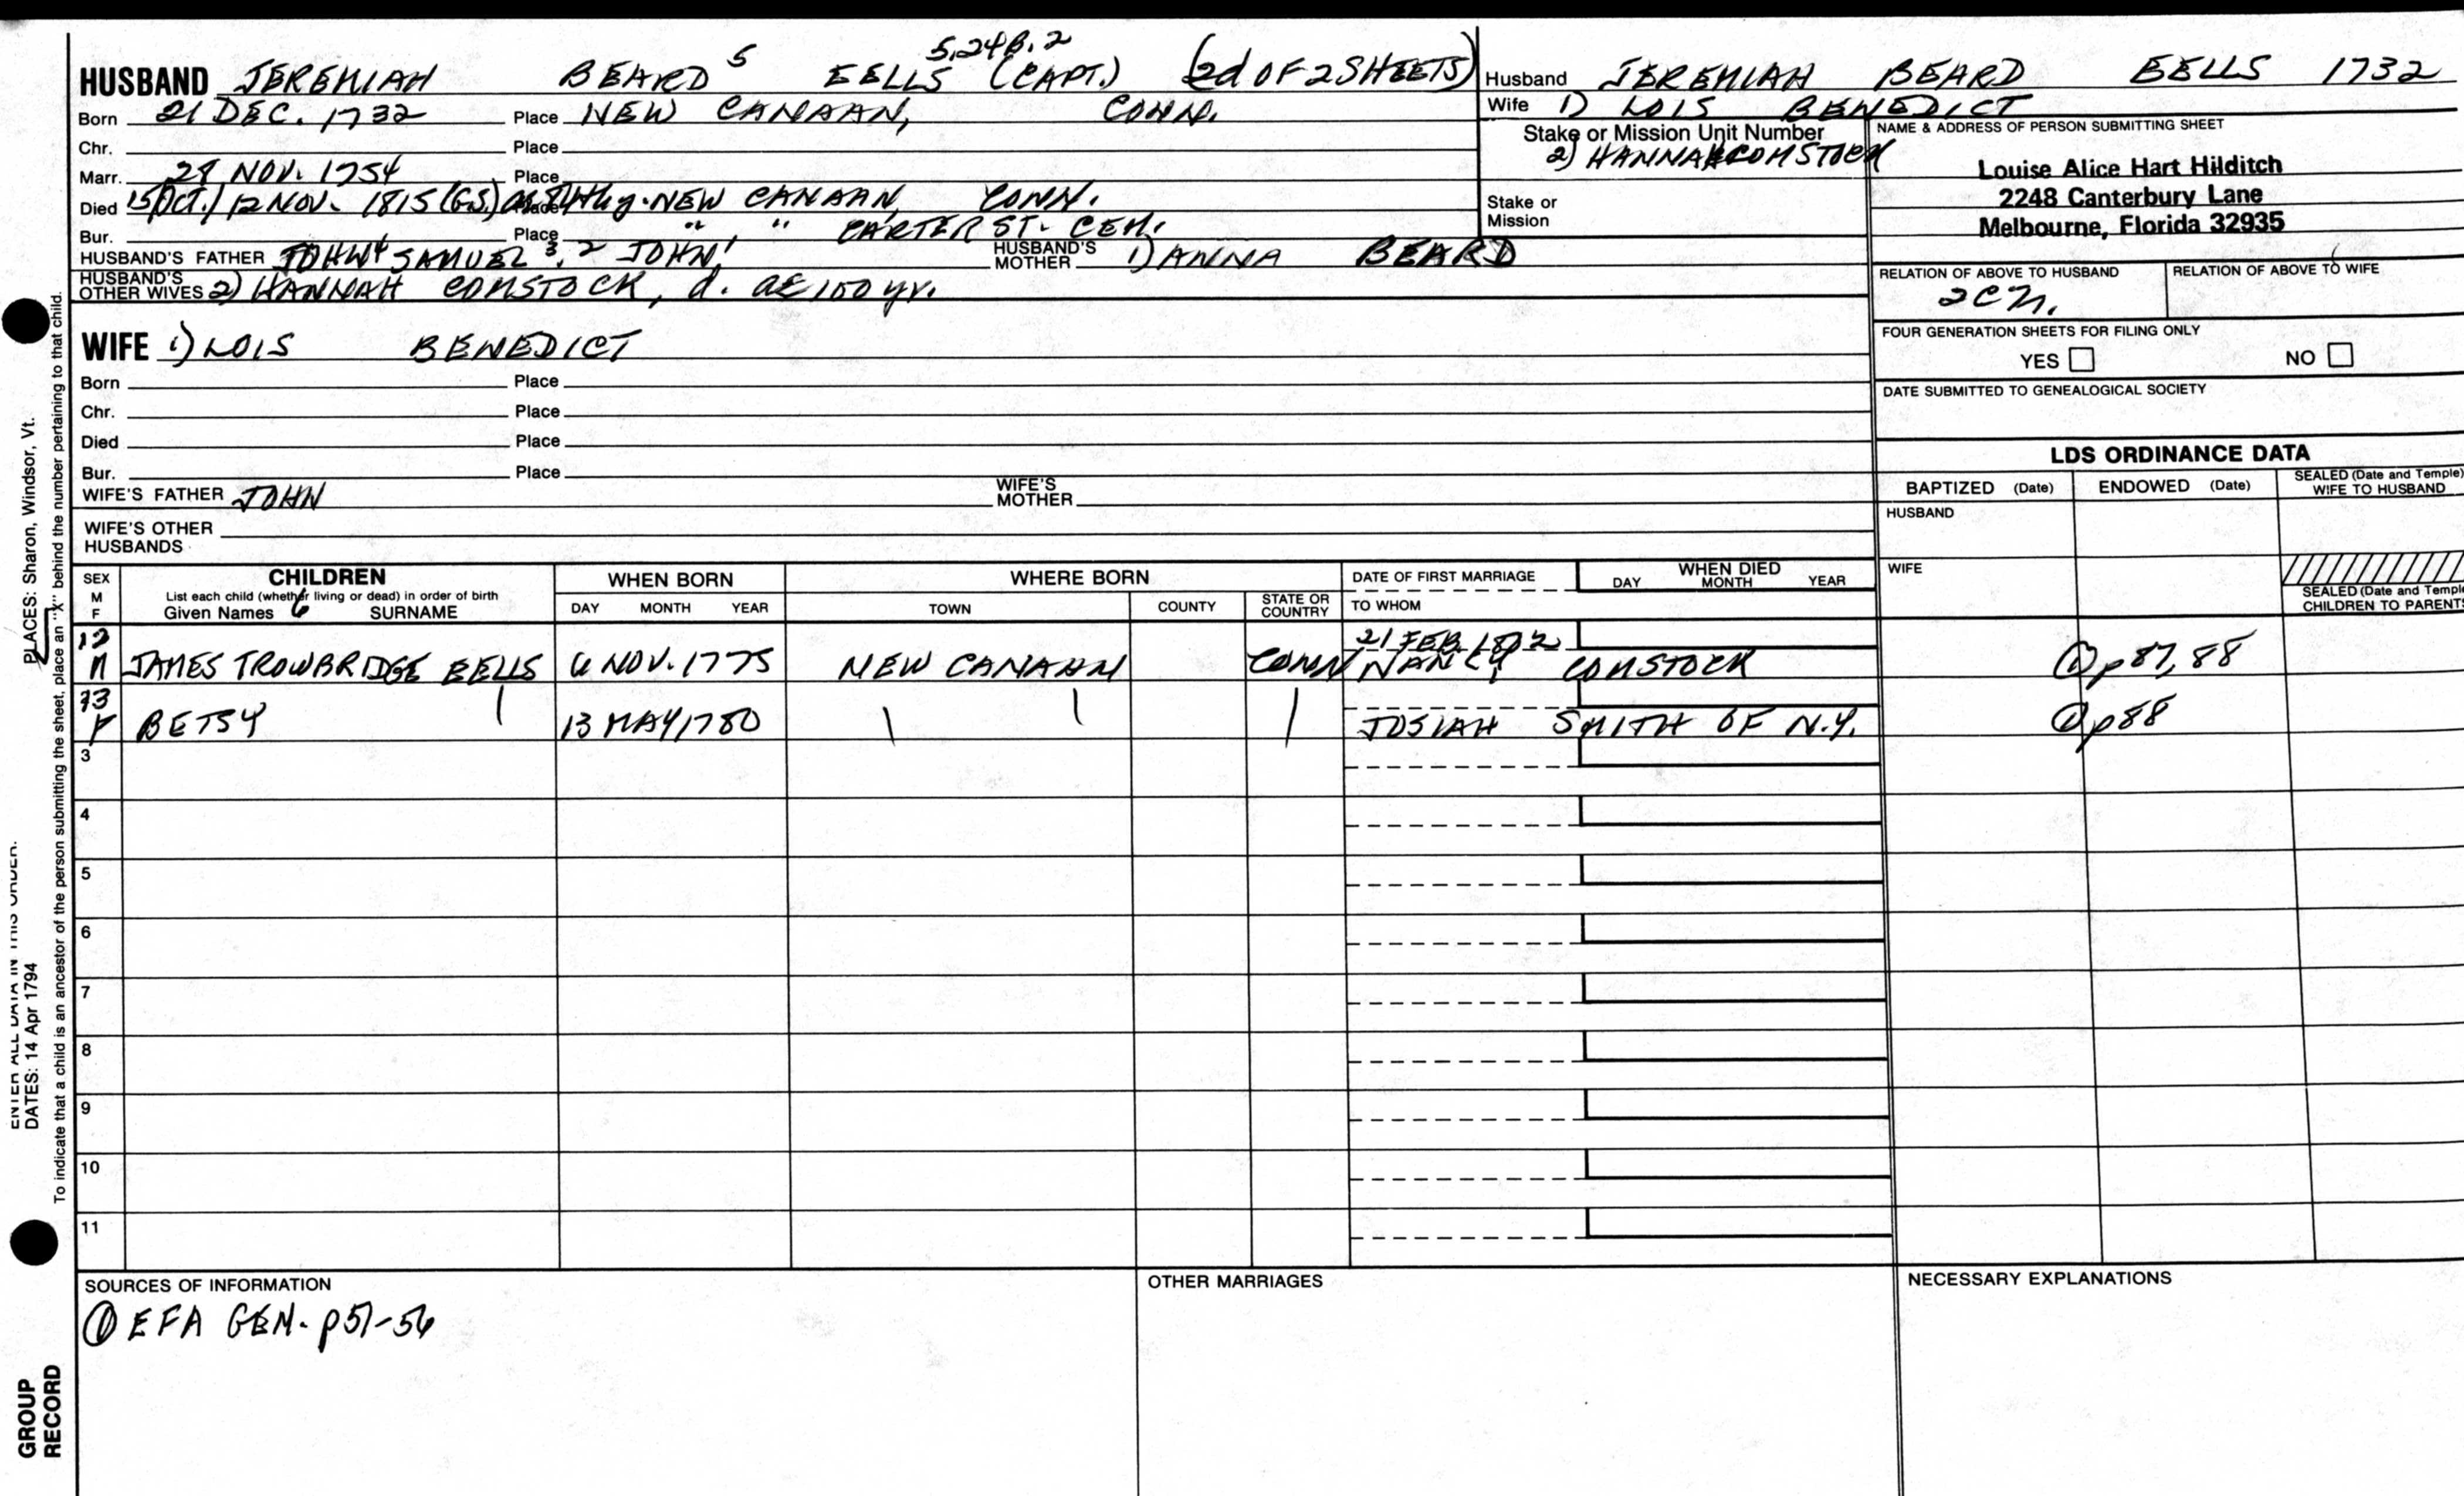 HUSBAND JEREMIAH BEARD 5 EELLS (CAPT.) 5,24B.2 (2d OF 2 SHEETS)
Born 21 DEC. 1732 Place NEW CANAAN, CONN.
Chr. Place
Marr. 28 NOV. 1754 Place
Died 15 OCT./12 NOV. 1815 (GS.) Place NEW CANAAN, CONN.
Bur. Place " " CARTER ST. CEM.
HUSBAND'S FATHER JOHN4 SAMUEL 3, 2 JOHN1 HUSBAND'S MOTHER 1) ANNA BEARD
HUSBAND'S OTHER WIVES 2) HANNAH COMSTOCK, d. ae 100 yr.
WIFE 1) LOIS BENEDICT
Born Place
Chr. Place
Died Place
Bur. Place
WIFE'S FATHER JOHN WIFE'S MOTHER
WIFE'S OTHER HUSBANDS
Husband JEREMIAH BEARD EELLS 1732
Wife 1) LOIS BENEDICT
Stake or Mission Unit Number
2) HANNAH COMSTOCK
Stake or Mission
NAME & ADDRESS OF PERSON SUBMITTING SHEET
Louise Alice Hart Hilditch
2248 Canterbury Lane
Melbourne, Florida 32935
RELATION OF ABOVE TO HUSBAND RELATION OF ABOVE TO WIFE
FOUR GENERATION SHEETS FOR FILING ONLY
YES NO
DATE SUBMITTED TO GENEALOGICAL SOCIETY
LDS ORDINANCE DATA
BAPTIZED (Date) ENDOWED (Date) SEALED (Date and Temple) WIFE TO HUSBAND
HUSBAND
WIFE
SEALED (Date and Temple) CHILDREN TO PARENTS
SEX M F
CHILDREN
List each child (whether living or dead) in order of birth
Given Names SURNAME
WHEN BORN
DAY MONTH YEAR
WHERE BORN
TOWN COUNTY STATE OR COUNTRY
DATE OF FIRST MARRIAGE
TO WHOM
WHEN DIED
DAY MONTH YEAR
12 21 FEB 1802
M JAMES TROWBRIDGE EELLS 6 NOV. 1775 NEW CANAAN CONN NANCY COMSTOCK ① p87, 88
13
F BETSY 13 MAY 1780 JOSIAH SMITH OF N.Y. ① p88
3
4
5
6
7
8
9
10
11
SOURCES OF INFORMATION
① EFA GEN. p51-56
OTHER MARRIAGES
NECESSARY EXPLANATIONS
PLACES: Sharon, Windsor, Vt.
ENTER ALL DATA IN THIS ORDER.
DATES: 14 Apr 1794
To indicate that a child is an ancestor of the person submitting the sheet, place an "X" behind the number pertaining to that child.
GROUP
RECORD